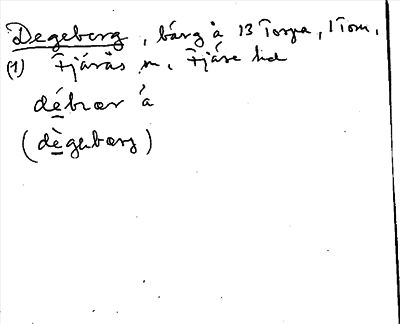 Degeberg, bärg å 13 Torpa, 1 Tom,
(1) Fjärås sn, Fjäre hd
débrær å
(dègubærj)